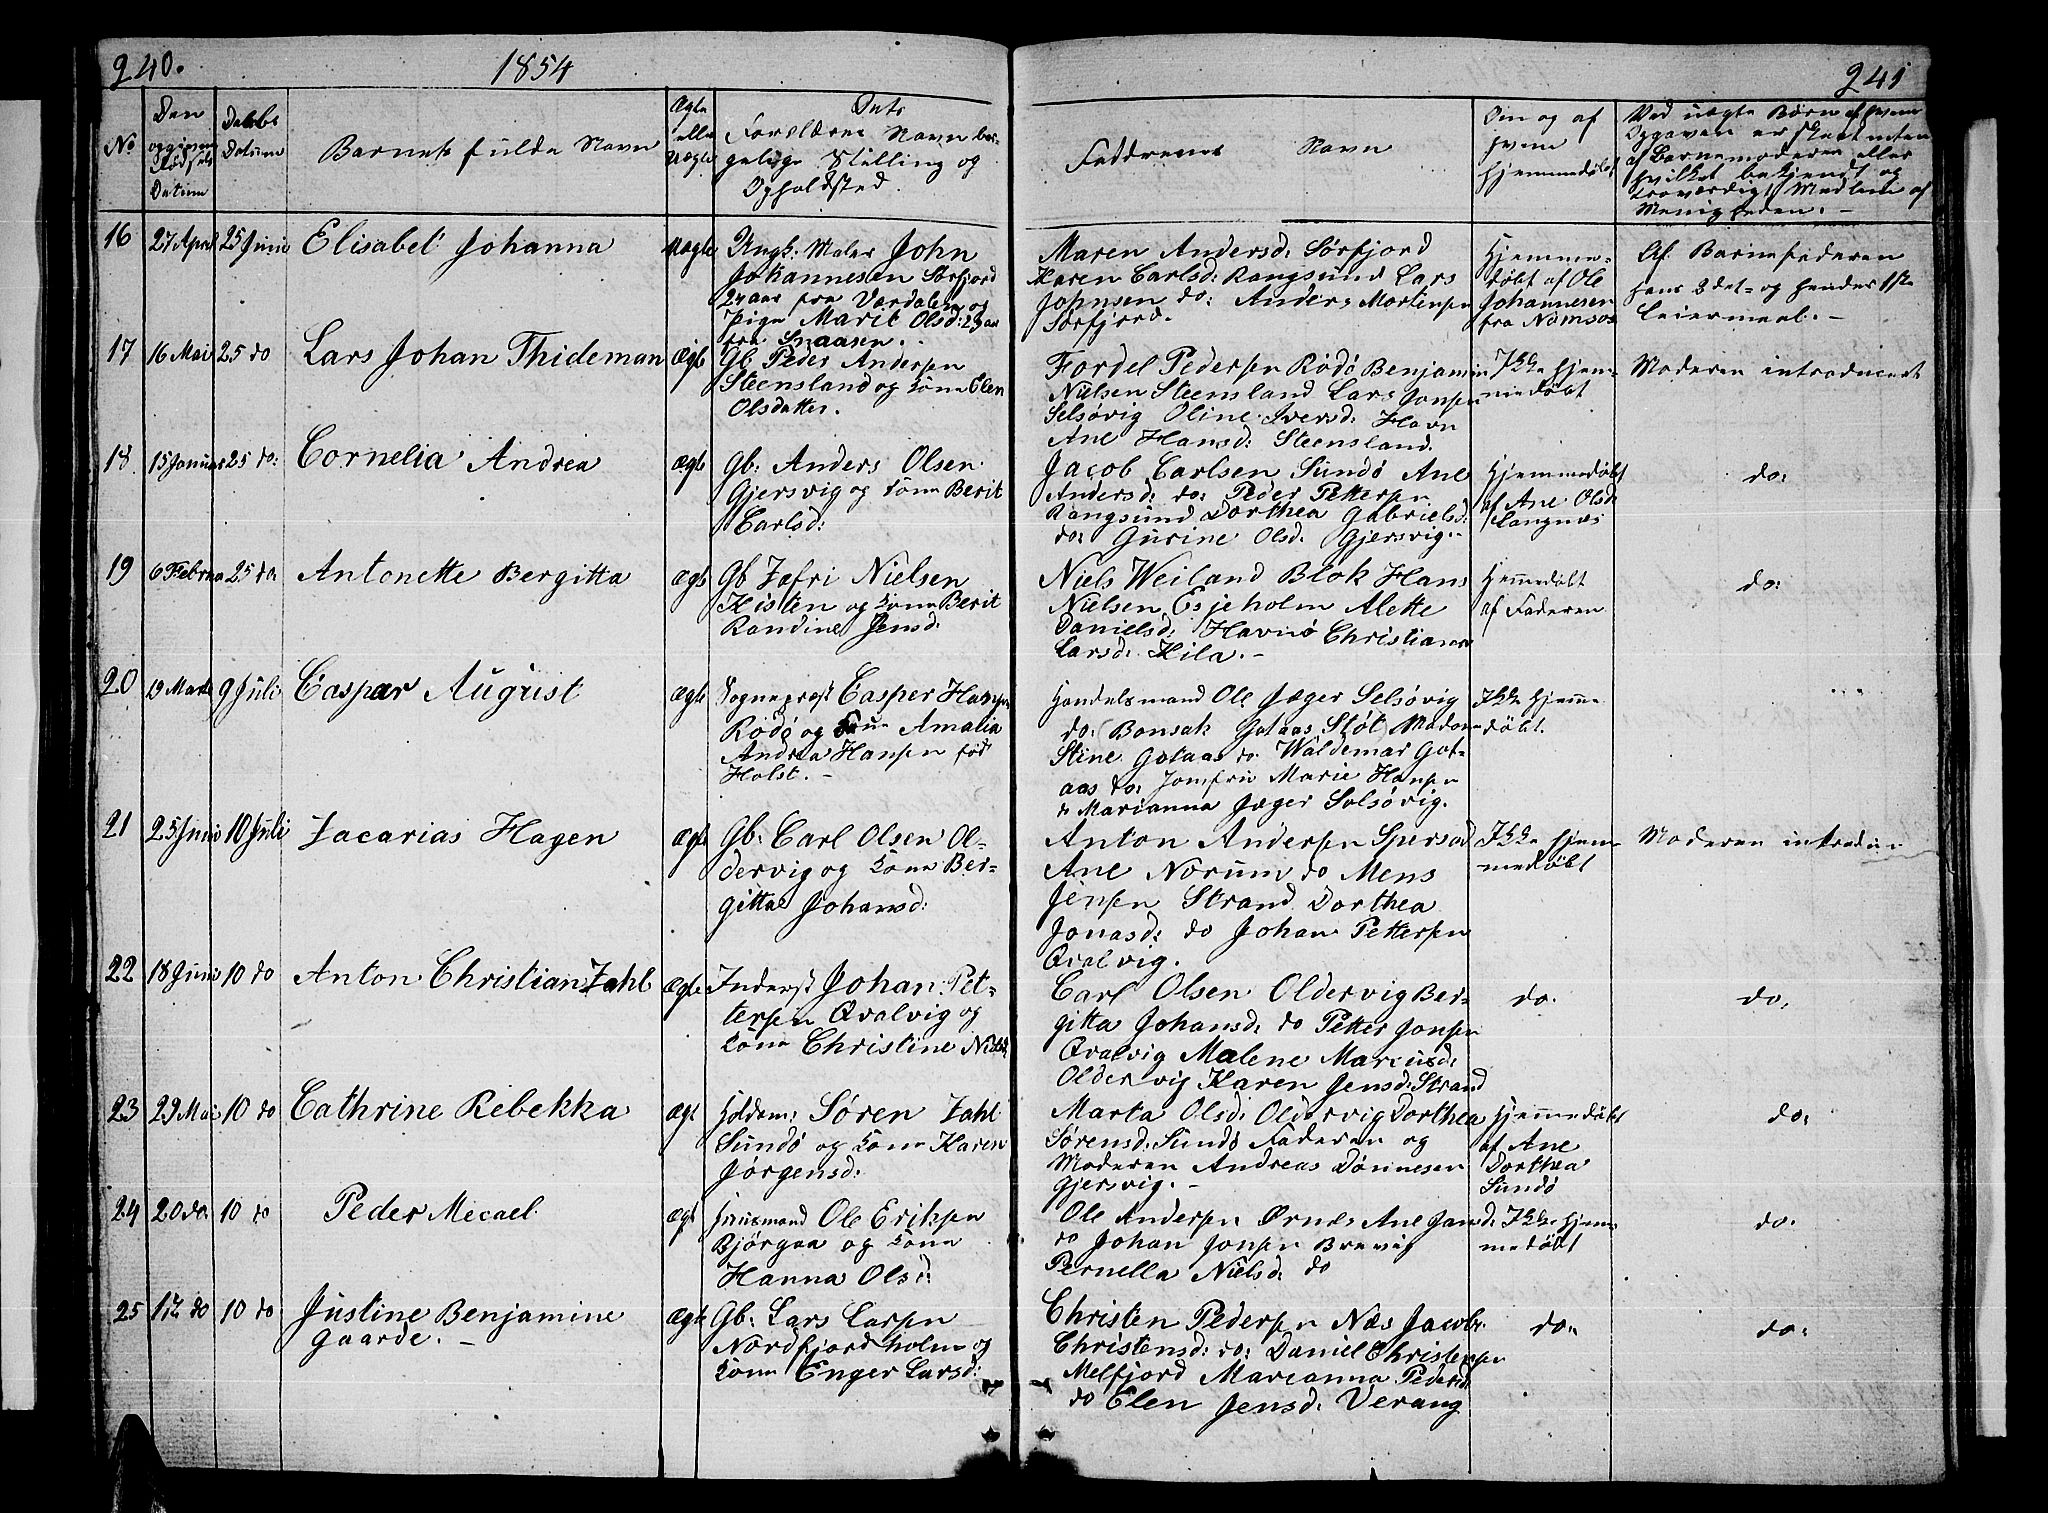 240.
1854
241
No
Den
opgivne
Fødsels
Datum
Daabs
Datum
Barnets fulde Navn
Ægte
eller
Uægte
Dets
Forældres Navn bor-
gelige Stilling og
Opholdsted.
Faddrenes Navn
Om og af
hvem
hjemmedøbt
Ved uægte Børn af hvem
Opgaven er skeet enten
af Barnemoderen eller
hvilket bekjendt og
troværdigt Medlem af
Menigheden. -
16
27 April
25 Juni
Elisabet Johanna
Uægte
Ungk: Maler John
Johannesen Sørfjord
24 aar fra Værdalen og
Pige Marit Olsd: 23 aar
fra Snaasen.
Maren Andersd: Sørfjord
Karen Carlsd: Rangsund Lars
Johnsen do: Anders Mortensen
Sørfjord.
Hjemme-
døbt af Ole
Johannesen
fra Namsos
Af Barnefaderen
hans 2det- og hendes 1ste
Leiermaal. -
17
16 Mai
25 do
Lars Johan Thideman
Ægte
Gb Peder Andersen
Steensland og Kone Elen
Olsdatter.
Fordel Pedersen Rødø Benjamin
Nielsen Steensland Lars Jonsen
Selsøvig Oline Iversd: Havn
Ane Hansd: Steensland.
Ikke hjem-
medøbt
Moderen introduceret
18
15 Januar
25 do:
Cornelia Andrea
ægte
Gb: Anders Olsen
Gjersvig og Kone Berit
Carlsd:
Jacob Carlsen Sundø Ane
Andersd: do: Peder Pettersen
Rangsund Dorthea Gabrielsd:
do: Gurine Olsd: Gjersvig. -
Hjemmedøbt
af Ane Olsd
Langnæs
do:
19
6 Februa
25 do
Antonette Bergitta
ægte
Gb Zefri Nielsen
Kisten og Kone Berit
Randine Jensd:
Niels Weiland Blok Hans
Nielsen Esjeholm Alette
Danielsd: Havnø Christiana
Larsd: Kila. -
Hjemmedøbt
af Faderen
do:
20
19 Marts
9 Juli
Caspar August
ægte
Sognepræst Casper Hansen
Rødø og Frue Amalia
Andrea Hansen født
Holst. -
Handelsmand Ole Jæger Selsøvig
do: Bonsak Gotaas Støt Madam
Stine Gotaas do Waldemar Got-
aas do: Jomfru Marie Hansen
do Marianna Jæger Selsøvig.
Ikke hjemme
døbt.
21
25 Juni
10 Juli
Zacarias Hagen
ægte
Gb: Carl Olsen Ol-
dervig og Kone Ber-
gitta Johansd:
Anton Andersen
Ane Norum do Mens
Jensen Strand Dorthea
Jonasd: do Johan Pettersen
Qvalvig.
Ikke hjem-
medøbt
Moderen introdu-
22
18 Juni
10 do
Anton Christian Zahl
Ægte
Inderst Johan Pet-
tersen Qvalvig og
Kone Christine
Carl Olsen Oldervig Ber-
gitta Johansd: do Petter Jonsen
Qvalvig Malene Marcusd:
Oldervig Karen Jensd: Strand
do.
do.
23
29 Mai
10 do
Cathrine Rebekka
ægt
Holdsm: Søren Zahl
Sundø og Kone Karen
Jørgensd:
Marta Olsd: Oldervig Dorthea
Sørensd: Sundø Faderen og
Moderen Andreas Dønnesen
Gjersvig. -
Hjemmedøbt
af Ane
Dorthea
Sundø
do:
24
20 do.
10 do
Peder Mecael
ægt
Huusmand Ole Eriksen
Bjørgaa og Kone
Hanna Olsd:
Ole Andersen Ørnæs Ane Jansd:
do Johan Jonsen Brevig
Pernella Nielsd: do
Ikke hjem-
medøbt
do:
25
do
10 do
Justine Benjamine
Gaarde. -
ægte
Gb: Lars Larsen
Nordfjordholm og
Kone Enger Larsd:
Christen Pedersen Næs Jacobi
Christensd: do: Daniel Christensen
Melfjord Marianna Pedersd:
do Elen Jensd: Verang
do.
do: